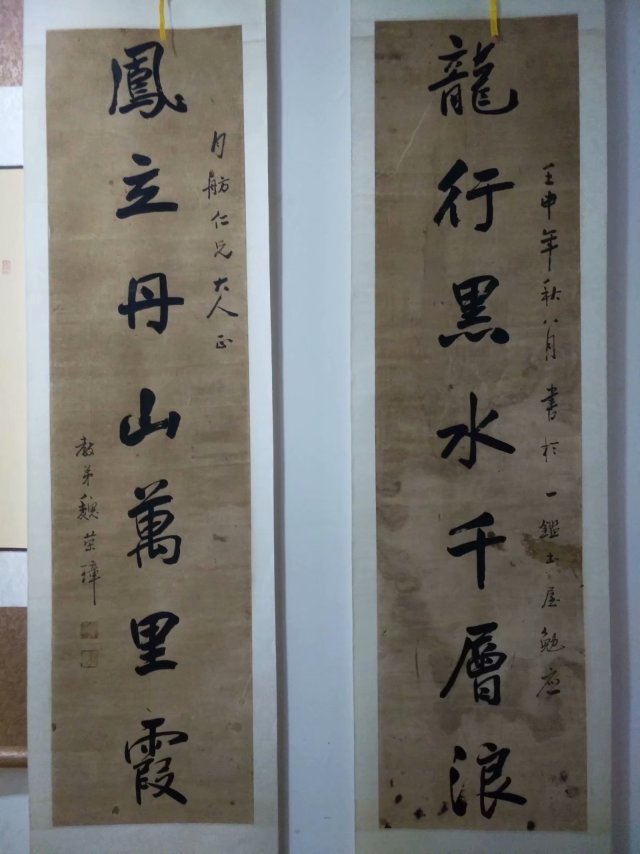 龍行黑水千層浪
壬申年秋八月書於一鑑土屋勉应
鳳立丹山萬里霞
月舫仁兄大人正
教弟魏荣璋